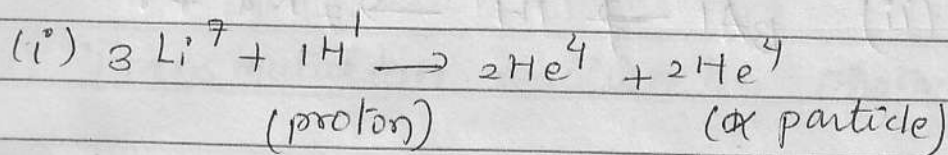 (i) ₃Li⁷ + ₁H¹ → ₂He⁴ + ₂He⁴
(proton) (α particle)